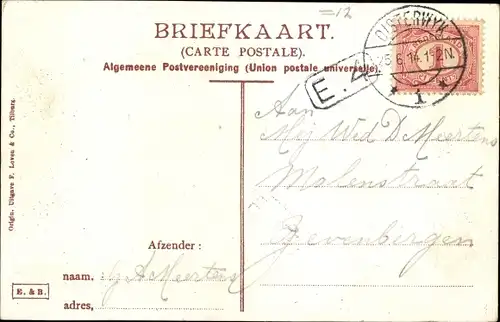 =12
BRIEFKAART.
(CARTE POSTALE).
Algemeene Postvereeniging (Union postale universelle).
OISTERWYK
25.6.14.1-2N.
1
E. 4
Aan
Mej Wed D Meertens
Molenstraat
Zevenbergen
Afzender:
naam. G A Meertens
adres,
E. & B.
Origin. Uitgave F. Loven & Co., Tilburg.